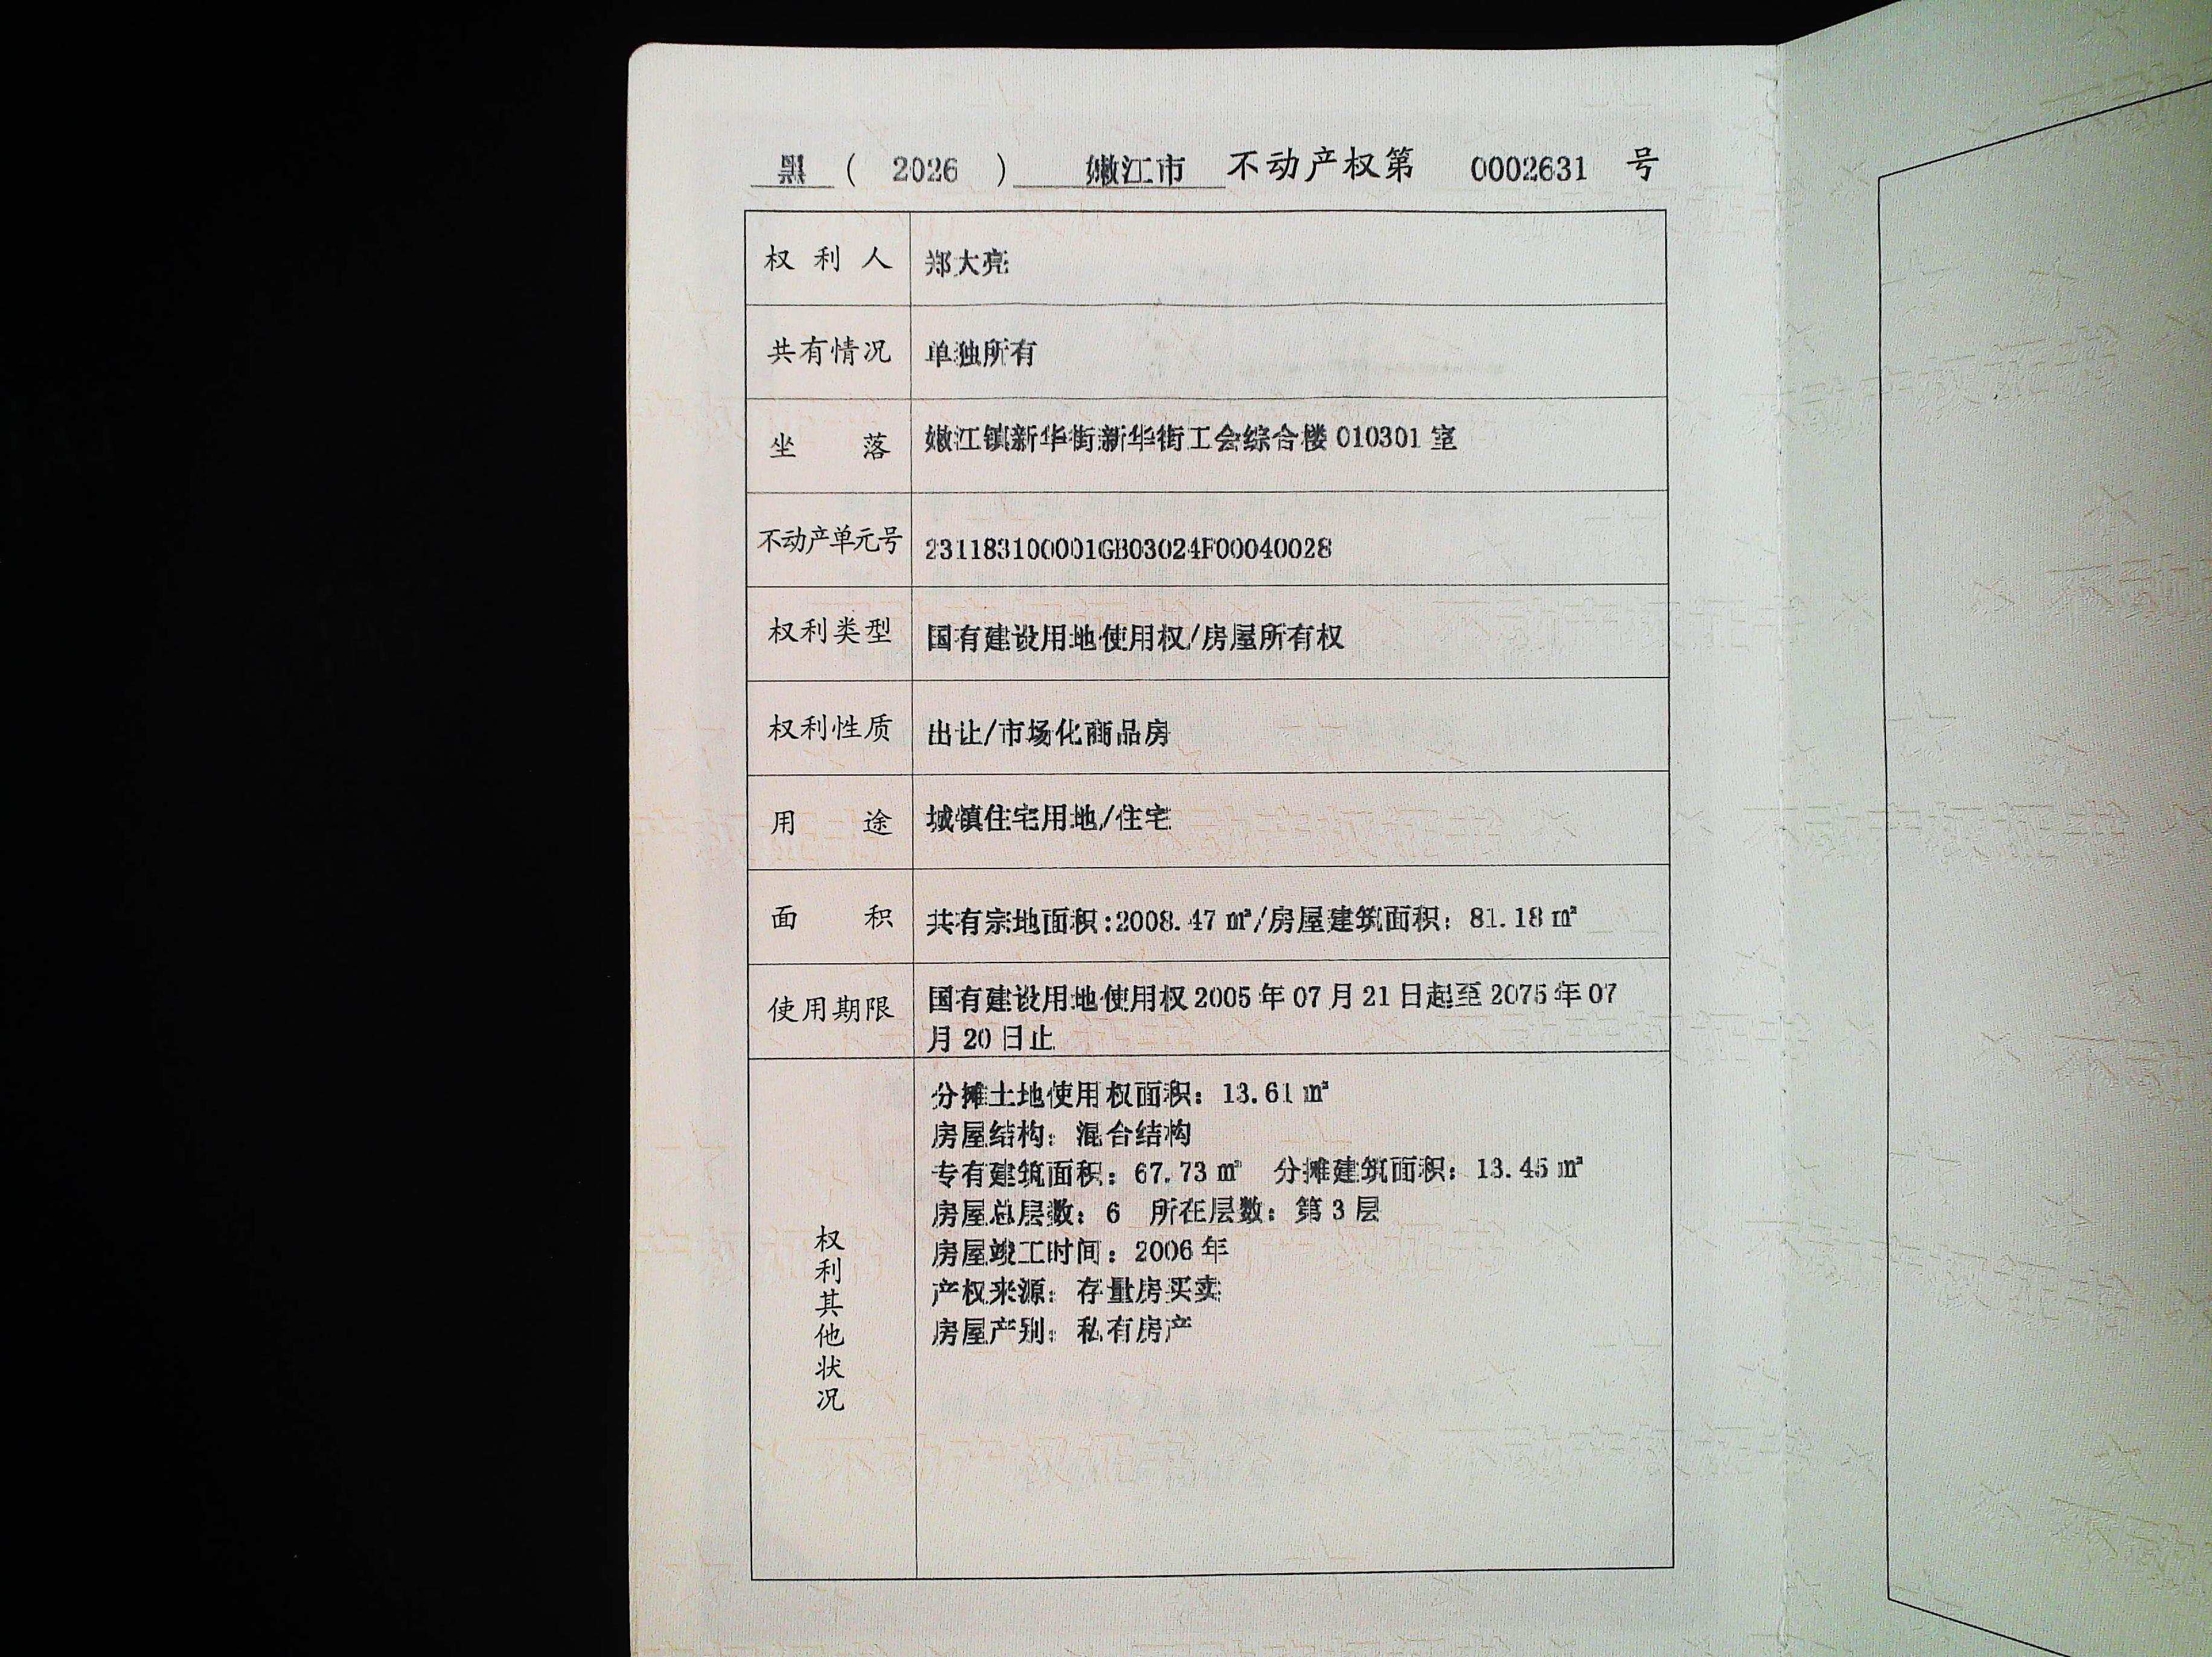 黑 ( 2026 ) 嫩江市 不动产权第 0002631 号
权利人 郑大亮
共有情况 单独所有
坐落 嫩江镇新华街新华街工会综合楼010301室
不动产单元号 231183100001GB03024F00040028
权利类型 国有建设用地使用权/房屋所有权
权利性质 出让/市场化商品房
用途 城镇住宅用地/住宅
面积 共有宗地面积:2008.47㎡/房屋建筑面积：81.18㎡
使用期限 国有建设用地使用权2005年07月21日起至2075年07
月20日止
权利其他状况
分摊土地使用权面积：13.61㎡
房屋结构：混合结构
专有建筑面积：67.73㎡ 分摊建筑面积：13.45㎡
房屋总层数：6 所在层数：第3层
房屋竣工时间：2006年
产权来源：存量房买卖
房屋产别：私有房产